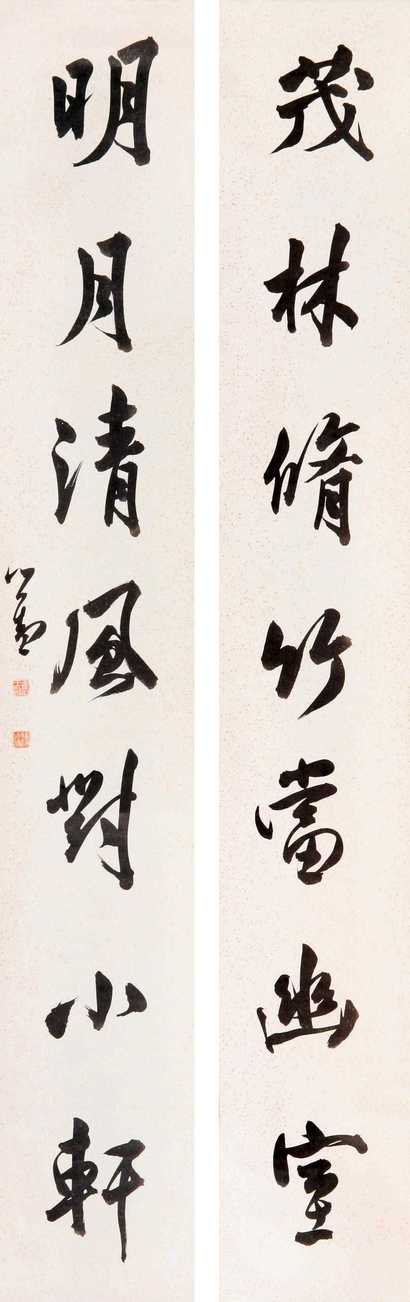 茂林脩竹當幽室
明月清風對小軒
心畬